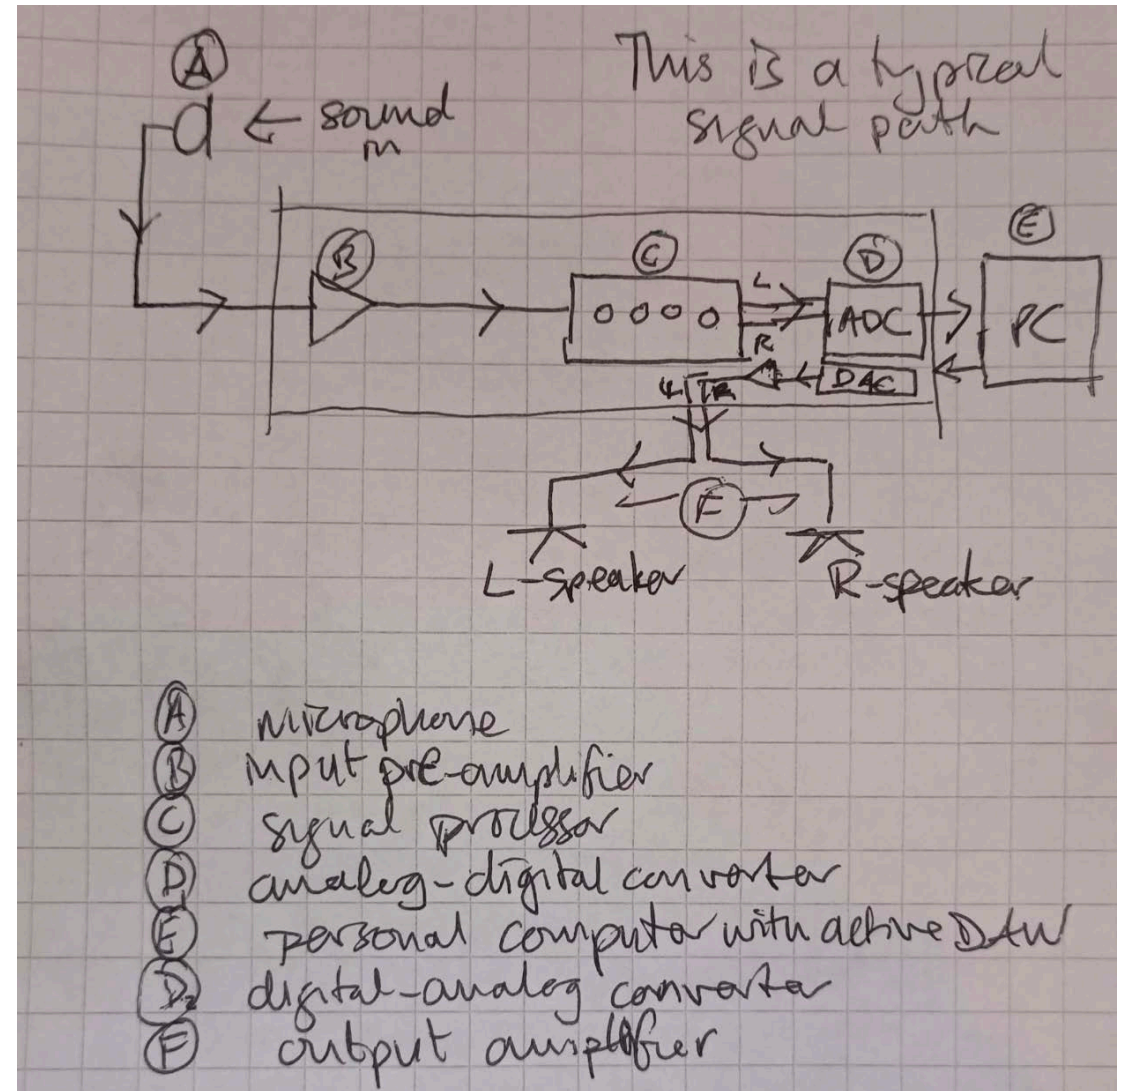 This is a typical
signal path
A
← sound
in
B
C
D
E
L
R
ADC
PC
DAC
L
R
F
L-speaker
R-speaker
A microphone
B input pre-amplifier
C signal processor
D analog-digital converter
E personal computer with active DAW
D2 digital-analog converter
F output amplifier